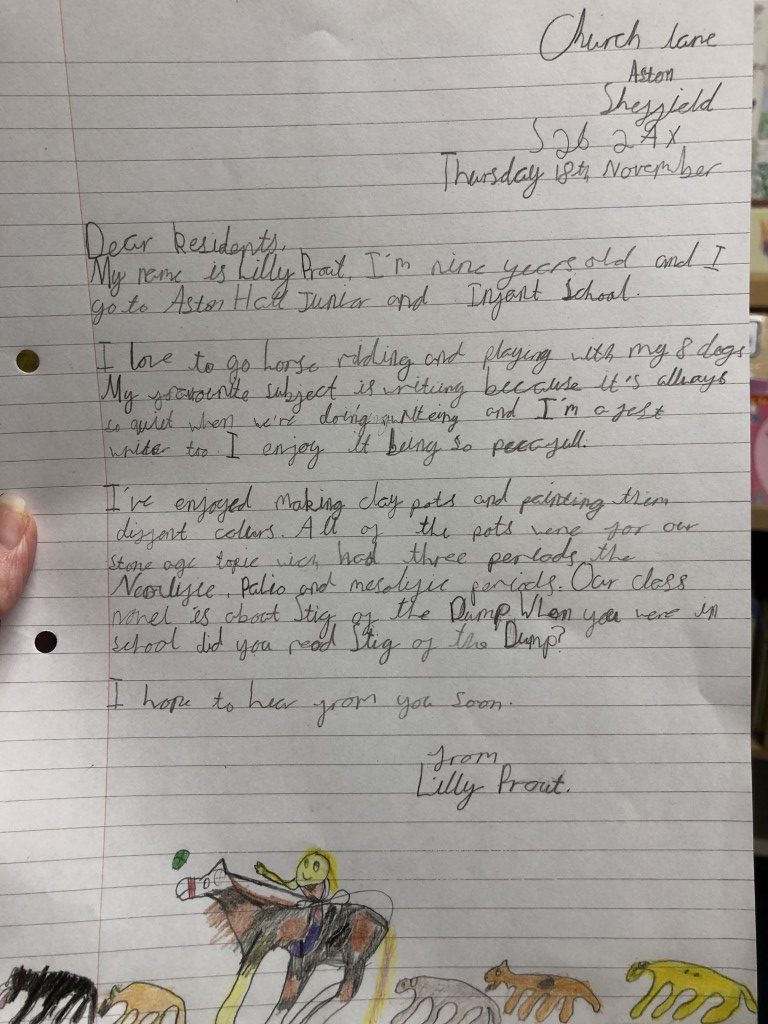 Church lane
Aston
Sheffield
S26 2AX
Thursday 18th November
Dear Residents,
My name is Lilly Prout, I'm nine years old and I
go to Aston Hall Junior and Infant School.
I love to go horse ridding and playing with my 8 dogs
My favourite subject is writing because it's always
so quiet when we're doing and I'm a fast
writer too. I enjoy it being so
I've enjoyed making clay pots and painting them
colours. All of the pots were for our
stone age topic wich had three periods the
Palio and periods. Our class
novel is about Stig of the Dump. When you were in
school did you read Stig of the Dump?
I hope to hear from you soon.
from
Lilly Prout.